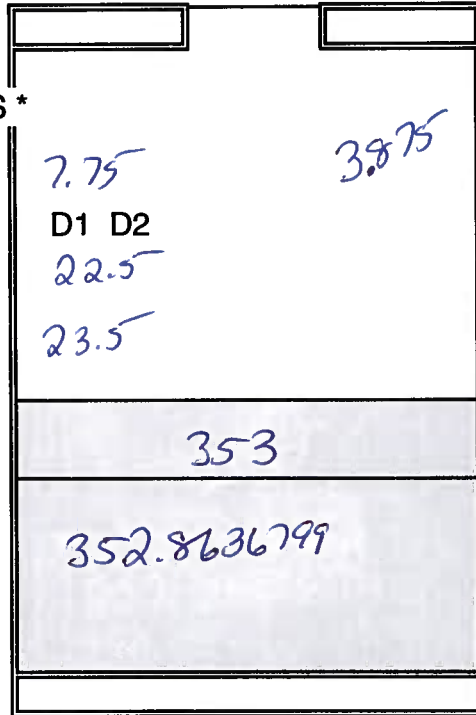 S *
7.75 3.875
D1 D2
22.5
23.5
353
352.8636799